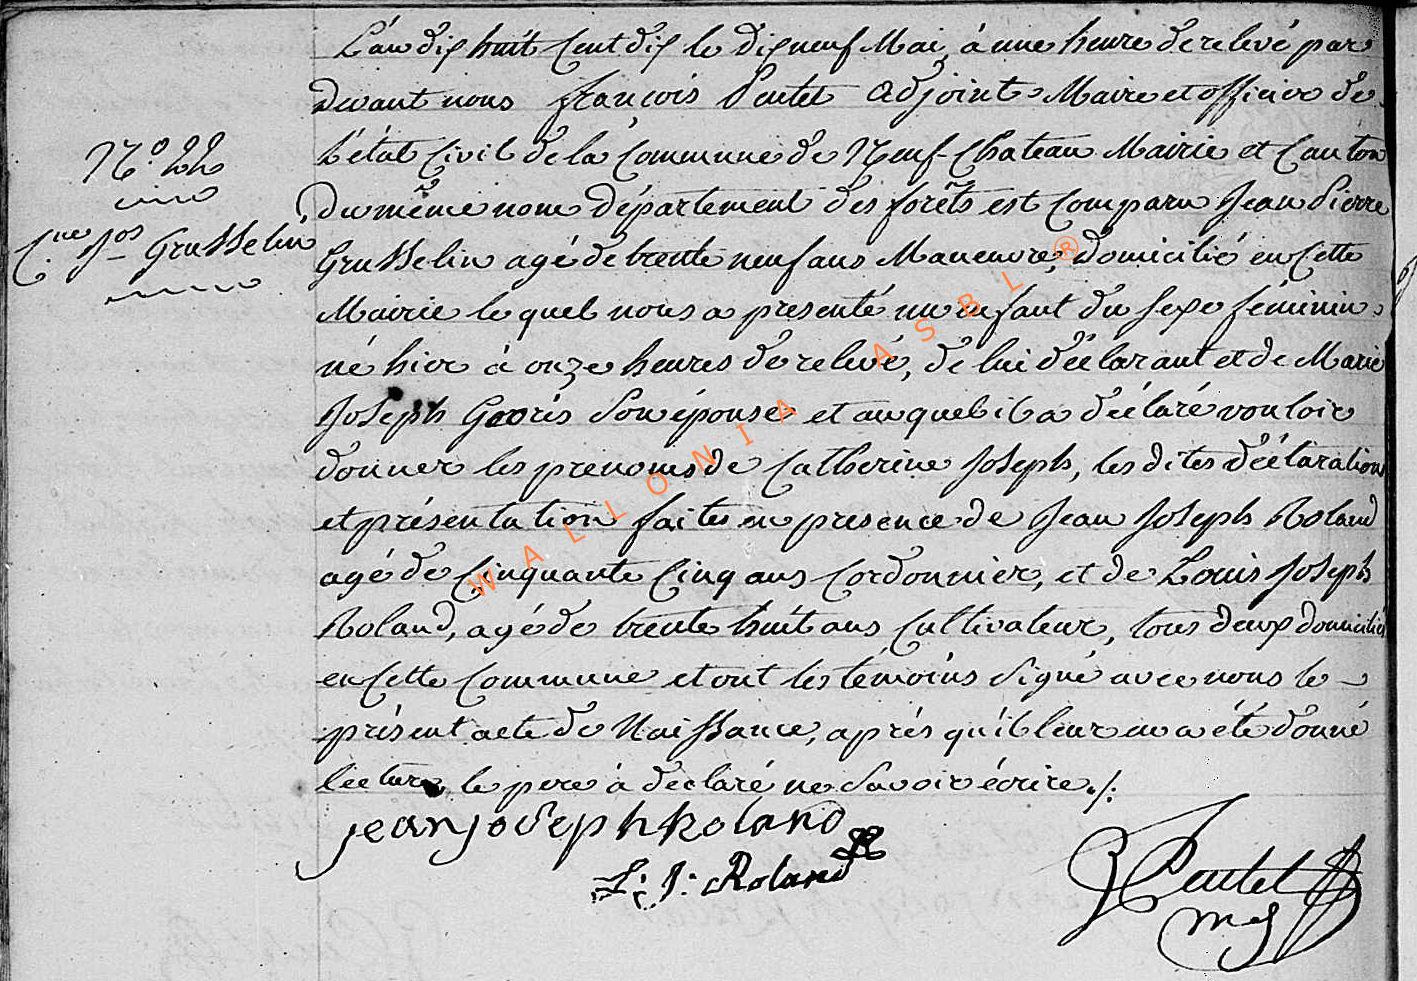 L'an dix huit Cent dix le dix neuf Mai, à une heure de relevé par
devant nous françois Pentet Adjoint Maire et officier de
L'état Civil de la Commune de Neuf-Chateau Mairie et Canton
N.o 22
du même nom département des forêts est Comparu Jean Pierre
C.ne J.os Grusselin
Grusselin agé de trente neuf ans Maneuvre, domicilié en Cette
Mairie le quel nous a presenté un enfant du sexe féminin
né hier à onze heures de relevé, de lui déclarant et de Marie
Joseph Gorés son épouse et au quel il a déclaré vouloir
donner les prenoms de Catherine Joseph, les dites déclaration
et présentation faites en presence de Jean Joseph Roland
agé de Cinquante Cinq ans Cordonnier, et de Louis Joseph
Roland, agé de trente huit ans Cultivateur, tous deux domiciliés
en Cette Commune et ont les témoins signé avec nous le
présent acte de Naissance, après qu'il leur en a été donné
lecture, le pere à declaré ne savoir écrire ./.
jean joseph Roland
L: J: Roland
Pentet
WALLONIA ASBL ®